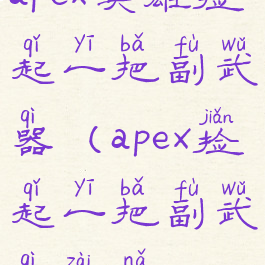 apex英雄捡
qǐ yī bǎ fù wǔ
起一把副武
qì jiǎn
器（apex捡
qǐ yī bǎ fù wǔ
起一把副武
qì zài nǎ